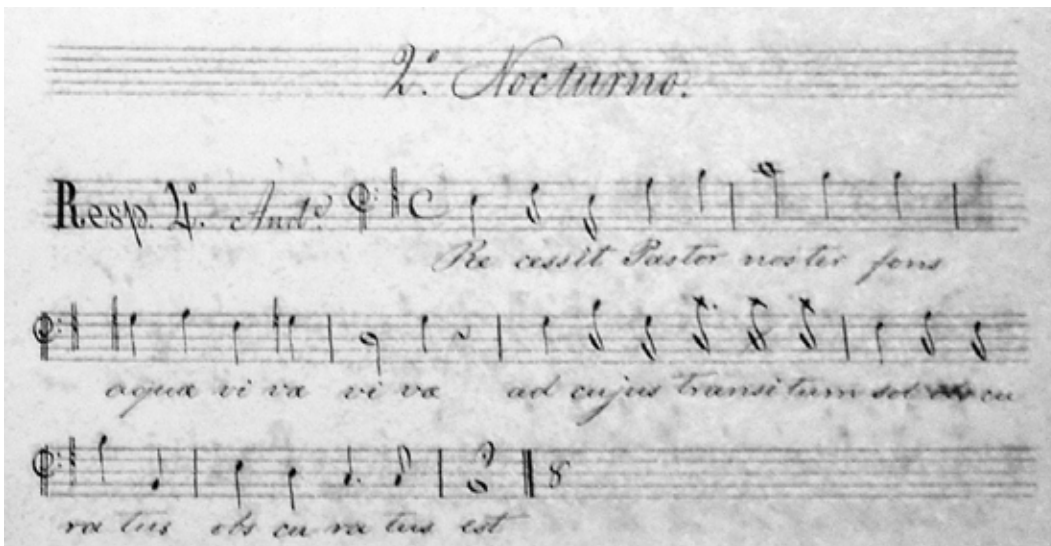 2º. Nocturno.
Resp. 4º. Andᵉ
Re cessit Pastor noster fons
aquæ vi væ vi væ ad cujus transitum sol cu
ra tus obs cu ra tus est